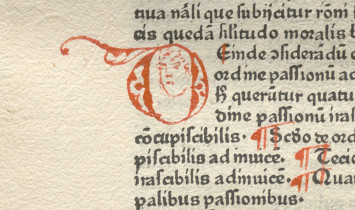 tiua nãli que subijcitur rõni
cis quedã silitudo moralis b
Deinde ↄsiderãdũ
ordine passionũ ac
hʒ querũtur quatu
dine passionũ iras
cõcupiscibilis. ¶ Scďo de ord
piscibilis ad inuicẽ. ¶ Tecio
irascibilis adinuicẽ. ¶ Quar
palibus passionibus.